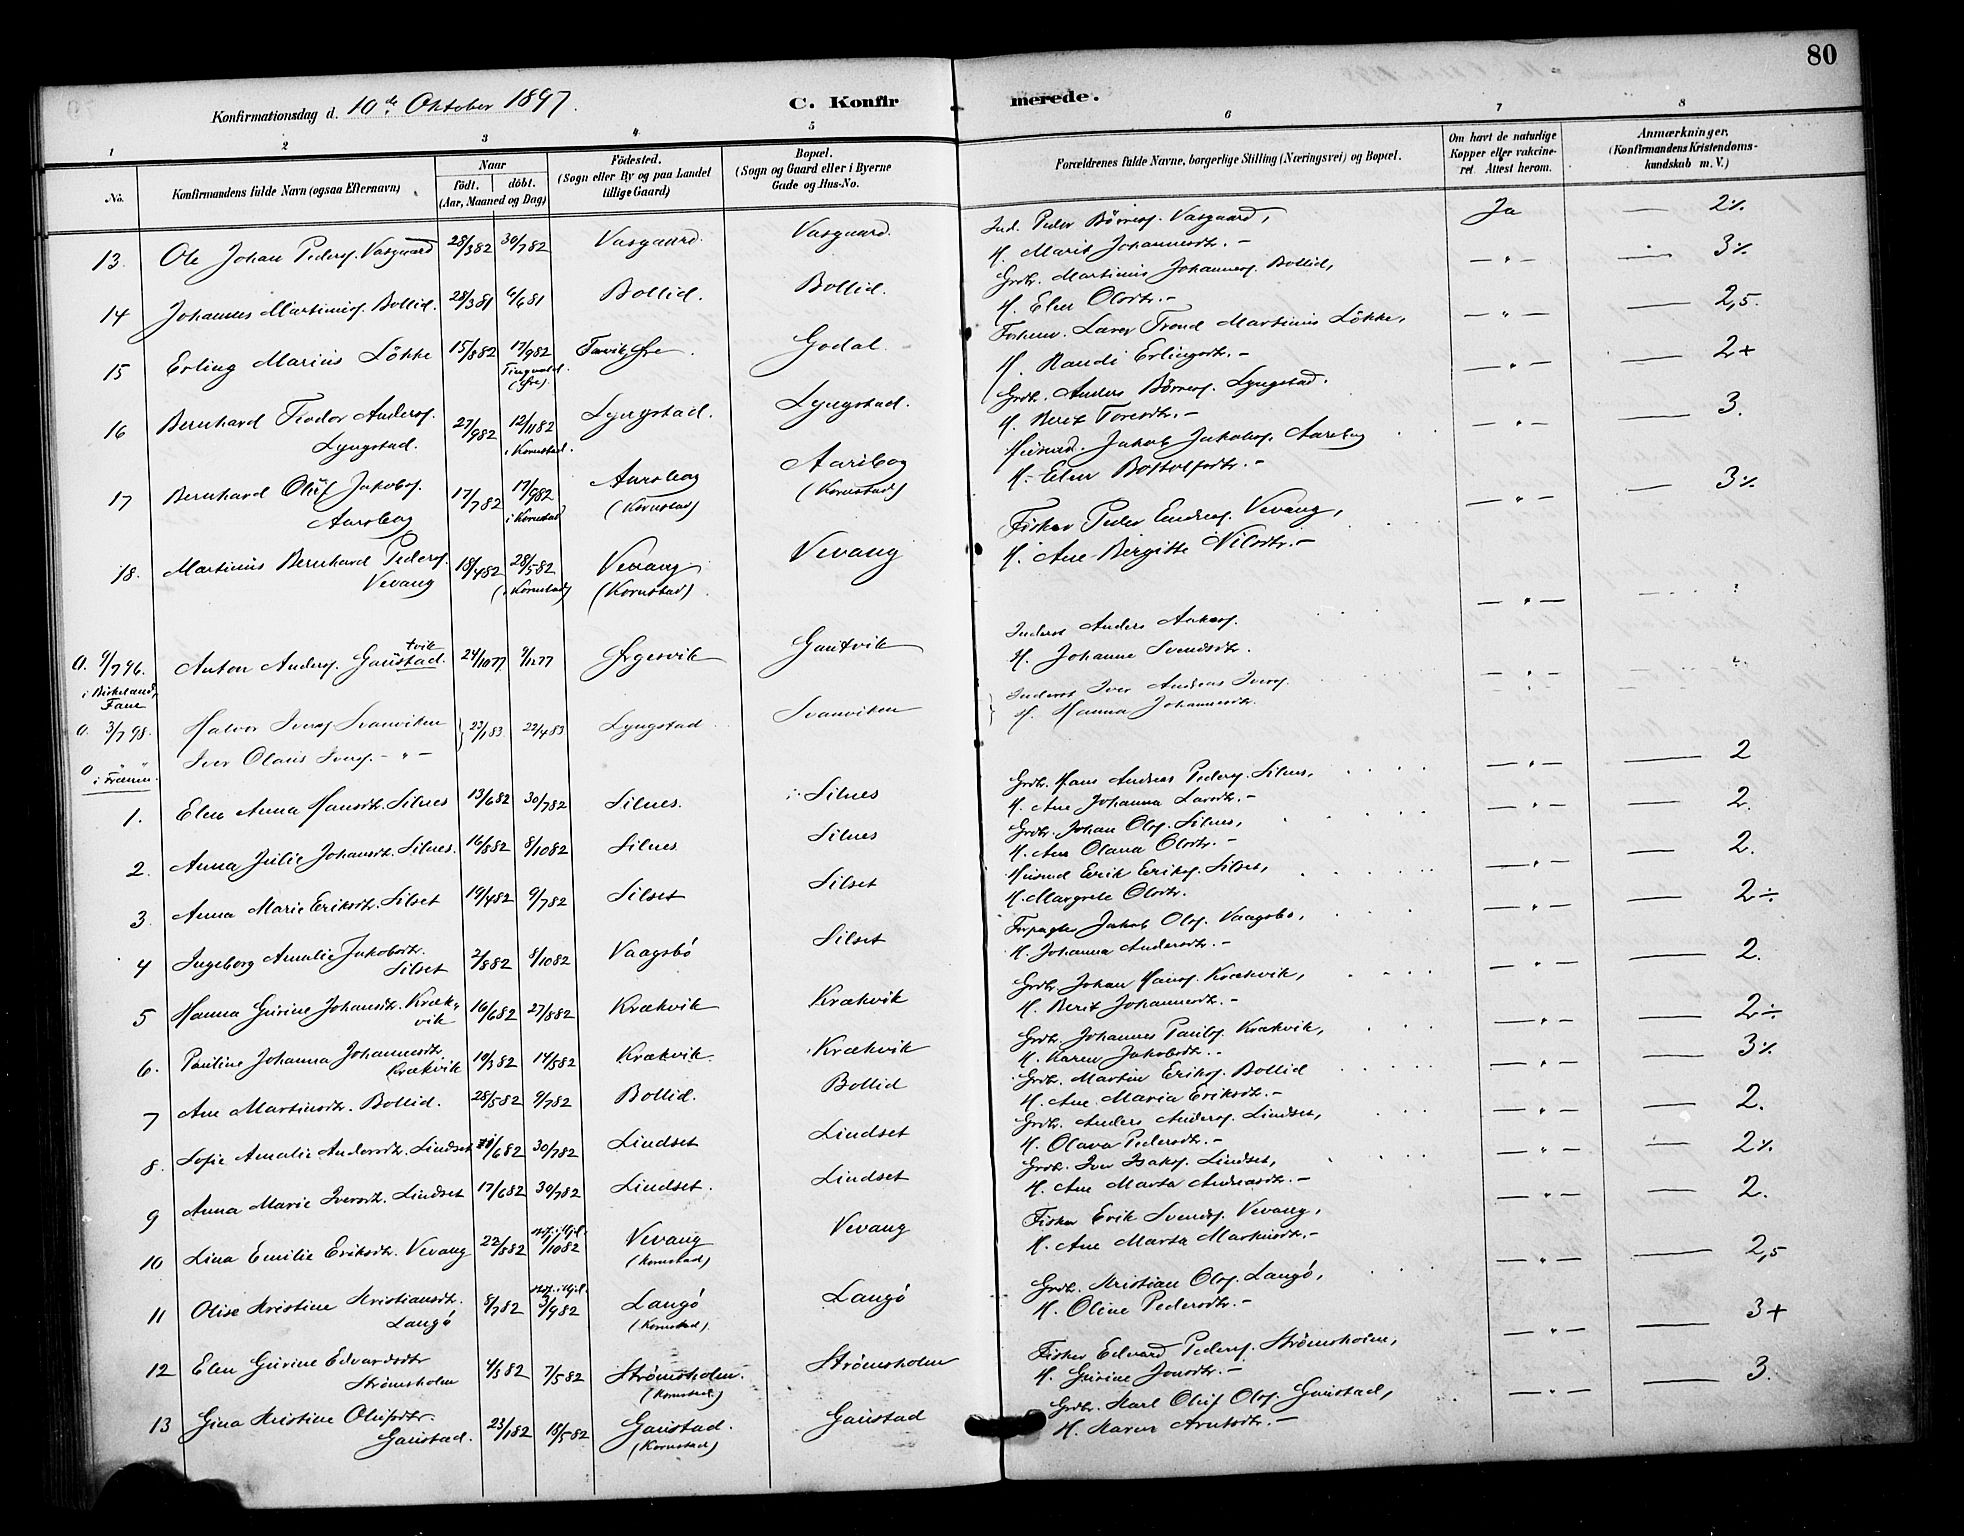 80
Konfirmationsdag d. 10de Oktober 1897.
C. Konfirmerede.
1 2 3 4 5 6 7 8
No. Konfirmandens fulde Navn (ogsaa Efternavn) Naar födt. döbt. (Aar, Maaned og Dag) Födested. (Sogn eller By og paa Landet tillige Gaard) Bopæl. (Sogn og Gaard eller i Byerne Gade og Hus-No. Forældrenes fulde Navne, borgerlige Stilling (Næringsvei) og Bopæl. Om havt de naturlige Kopper eller vakcineret Attest herom. Anmærkninger, (Konfirmandens Kristendomskundskab m. V.)
13. Ole Johan Peders. Vasgaard 28/3 82 30/7 82 Vasgaard. Vasgaard. Ind. Peder Börres. Vasgaard, Ja — 2%.
H. Marit Johannesdtr. –
14 Johannes Martinus. Bollid. 28/3 81 6/6 81 Bollid. Bollid. Grdbr. Martinus Johannes. Bollid, — " — — 3%
H. Elen Olsdtr. –
15 Erling Marius Lökke 15/8 82 17/9 82 Tingvold. (Øre). Godal. Forhenv. Lærer Trond Martinus Lökke, — " — — 2,5.
H. Randi Erlingsdtr. –
16 Bernhard Teodor Anders. Lyngstad. 27/9 82 12/11 82 i Kornstad. Lyngstad. Lyngstad. Grdbr. Anders Börres. Lyngstad. — " — — 2+
H. Berit Toresdtr. –
17 Bernhard Oluf Jakobs. Aarsbog 17/7 82 17/9 82 i Kornstad Aarsbog (Kornstad) Aarsbog (Kornstad) Husmd. Jakob Jakobs. Aarsbog — " — — 3.
H. Elen Bottolfsdtr. –
18. Martinus Bernhard Peders. Vevang 18/4 82 28/5 82 (i Kornstad) Vevang (Kornstad) Vevang Fisker Peder Endres. Vevang, — " — — 3%
H. Ane Birgitte Nilsdtr. –
a. 9/7 96. i Birkeland, Fane Anton Anders. Gaustad. tvik 24/10 77 9/12 77 Ørgesvik Gautvik Inderst Anders Ankers. — " —
H. Johanne Svendsdtr.
a. 3/7 98. Halvor Ivers. Svanviken 23/1 83 22/4 83 Lyngstad Svanviken Inderst Iver Andreas Ivers. — " —
o " i Frænen. Iver Olaus Ivers. – " – H. Hanna Johannesdtr. "
1. Elen Anna Hansdtr. Silnes 13/6 82 30/7 82 Silnes. Silnes Grdbr. Hans Andreas Peders. Silnes, — " — — 2
H. Ane Johanna Larsdtr. –
2. Anna Julie Johansdtr. Silnes. 16/8 82 8/10 82 Silnes Silnes Grdbr. Johan Ols. Silnes, — " — — 2.
H. Ane Olava Olsdtr. –
3. Anna Marie Eriksdtr. Silset 19/4 82 9/7 82 Silset Silset Husmd Erik Eriks. Silset, — " — — 2.
H. Margrete Olsdtr.
4 Ingeborg Amalie Jakobsdtr. Silset 2/8 82 8/10 82 Vaagsbö Silset Forpagter Jakob Ols. Vaagsbö, — " — — 2÷
H. Johanna Andersdtr. –
5 Hanna Gurine Johansdtr. Krækvik 16/6 82 27/8 82 Krækvik Krækvik Grdbr. Johan Hans. Krækvik, — " — — 2.
H. Berit Johannesdtr. –
6. Pauline Johanna Johannesdtr. Krækvik 10/3 82 14/5 82 Krækvik. Krækvik Grdbr. Johannes Pauls. Krækvik, — " — — 2÷
H. Karen Jakobsdtr. –
7 Ane Martinsdtr. Bollid. 28/5 82 9/7 82 Bollid. Bollid Grdbr. Martin Eriks. Bollid — " — — 3%
H. Ane Maria Eriksdtr. –
8. Sofie Amalie Andersdtr. Lindset /6 82 30/7 82 Lindset Lindset Grdbr. Anders Anders. Lindset, — " — — 2.
H. Olava Pedersdtr. –
9 Anna Marie Iversdtr. Lindset 17/6 82 30/7 82 Lindset. Lindset Grdbr. Iver Isaks. Lindset, — " — — 2%
H. Ane Marta Andreasdtr. –
10 Lina Emilie Eriksdtr. Vevang 22/8 82 1/10 82 Vevang (Kornstad) Vevang Fisker Erik Svends. Vevang, — " — — 2.
H. Ane Marta Markusdtr. –
11 Olise Kristine Kristiansdtr. Langö 8/7 82 3/9 82 Langö (Kornstad). Langö Grdbr. Kristian Ols. Langö, — " — — 2,5
H. Oline Pedersdtr. –
12 Elen Gurine Edvardsdtr Strömsholm 4/3 82 7/5 82 Strömsholm. (Kornstad.) Strömsholm Fisker Edvard Peders. Strömsholm, — " — — 3+
H. Gurine Jonsdtr. –
13 Gina Kristine Olufsdtr. Gaustad. 23/1 82 18/5 82 Gaustad. (Kornstad) Gaustad Grdbr. Karl Oluf Ols. Gaustad, — " — — 3.
H. Karen Arntsdtr. –